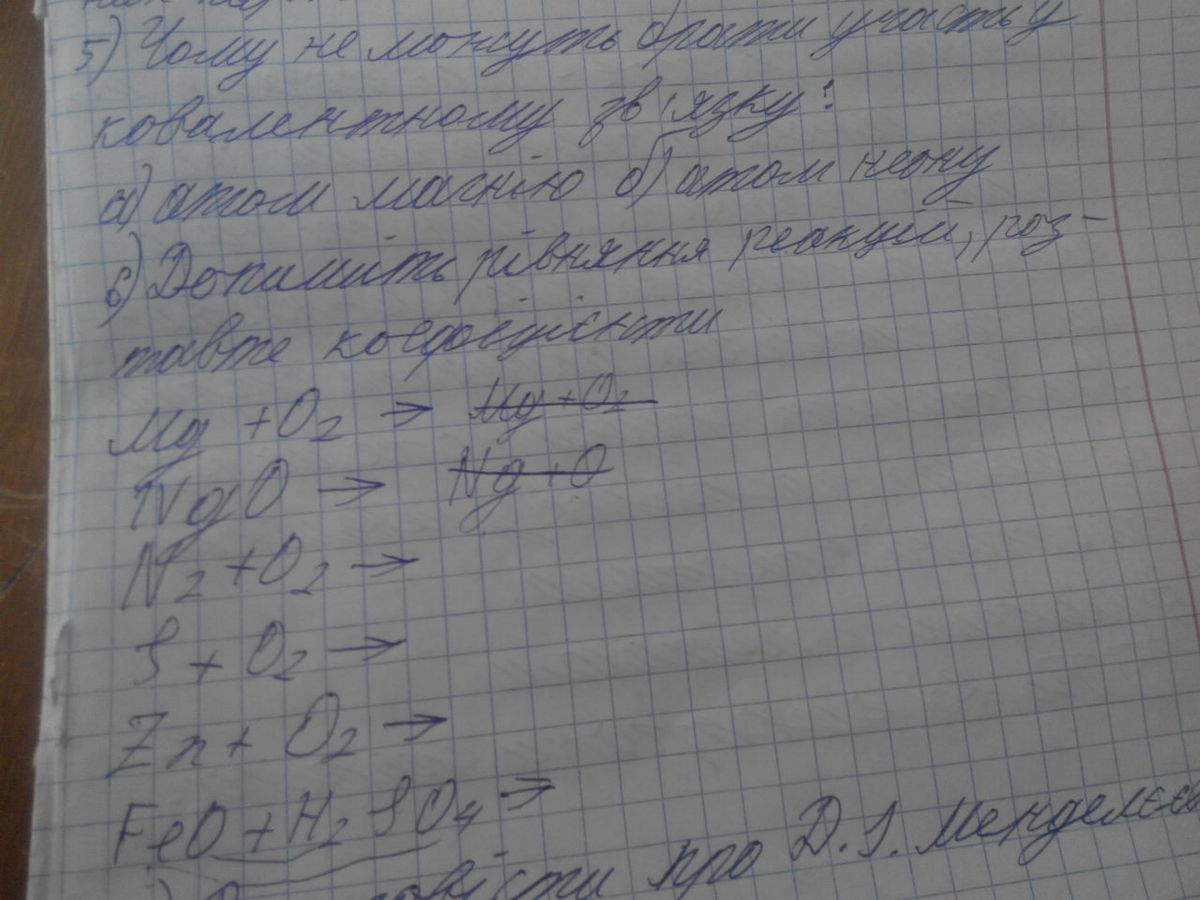 5) Чому не можуть брати участь у
ковалентному зв'язку:
а) атом магнію б) атом неону
6) Допишіть рівняння реакцій, роз-
тавте коефіцієнти
Mg + O2 → Mg + O2
NgO → Ng + O
N2 + O2 →
S + O2 →
Zn + O2 →
FeO + H2SO4 →
про Д.І. Менделєєв